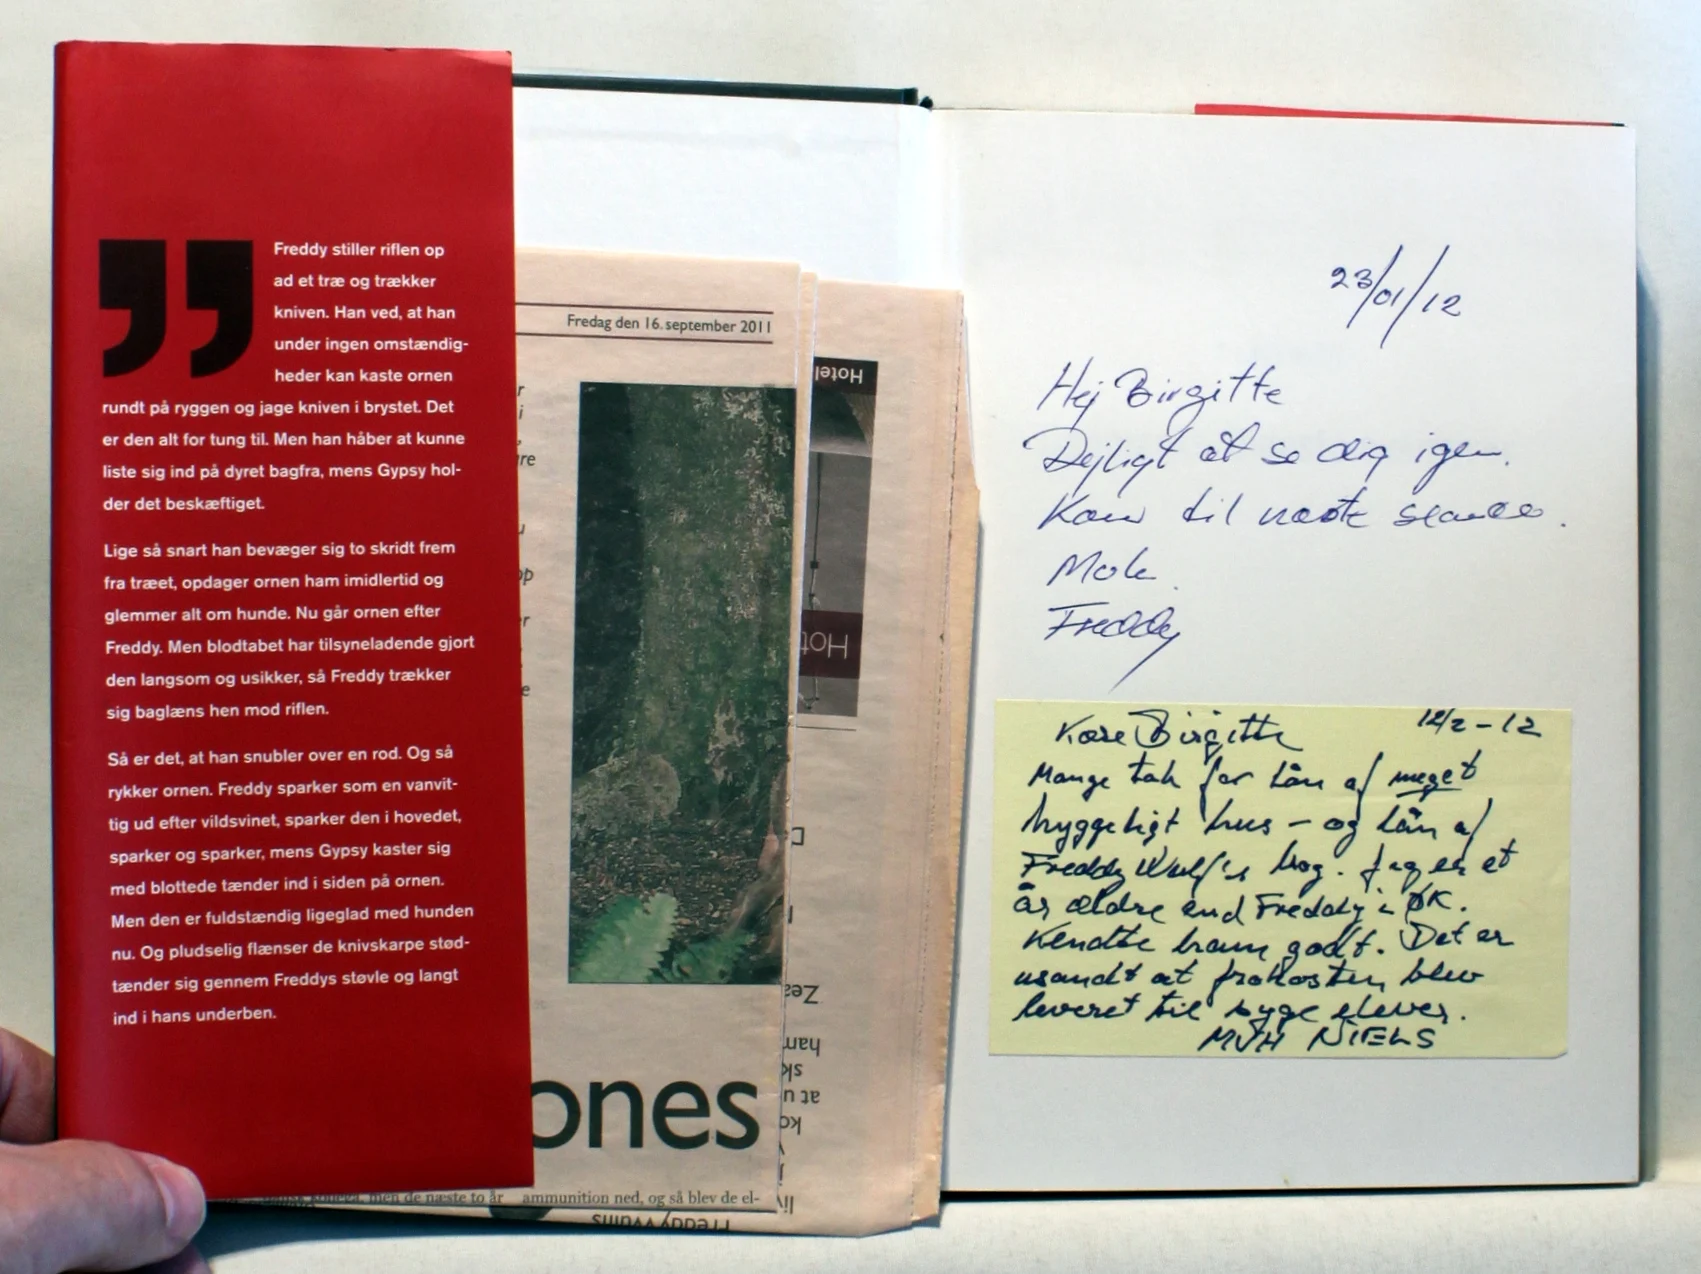 Freddy stiller riflen op
ad et træ og trækker
kniven. Han ved, at han
under ingen omstændig-
heder kan kaste ornen
rundt på ryggen og jage kniven i brystet. Det
er den alt for tung til. Men han håber at kunne
liste sig ind på dyret bagfra, mens Gypsy hol-
der det beskæftiget.
Lige så snart han bevæger sig to skridt frem
fra træet, opdager ornen ham imidlertid og
glemmer alt om hunde. Nu går ornen efter
Freddy. Men blodtabet har tilsyneladende gjort
den langsom og usikker, så Freddy trækker
sig baglæns hen mod riflen.
Så er det, at han snubler over en rod. Og så
rykker ornen. Freddy sparker som en vanvit-
tig ud efter vildsvinet, sparker den i hovedet,
sparker og sparker, mens Gypsy kaster sig
med blottede tænder ind i siden på ornen.
Men den er fuldstændig ligeglad med hunden
nu. Og pludselig flænser de knivskarpe stød-
tænder sig gennem Freddys støvle og langt
ind i hans underben.
Fredag den 16. september 2011
Hotel
Hot
ones
men de næste to år
ammunition ned, og så blev de el-
Freddy Wulffs
23/01/12
Hej Birgitte
Dejligt at se dig igen.
Kom til næste seance.
Freddy
Kære Birgitte 12/2-12
Mange tak for lån af meget
hyggeligt hus – og lån af
Freddy Wulf's bog. Jeg er et
år ældre end Freddy i ØK.
Kendte ham godt. Det er
usandt at frokosten blev
leveret til syge elever.
MVH NIELS